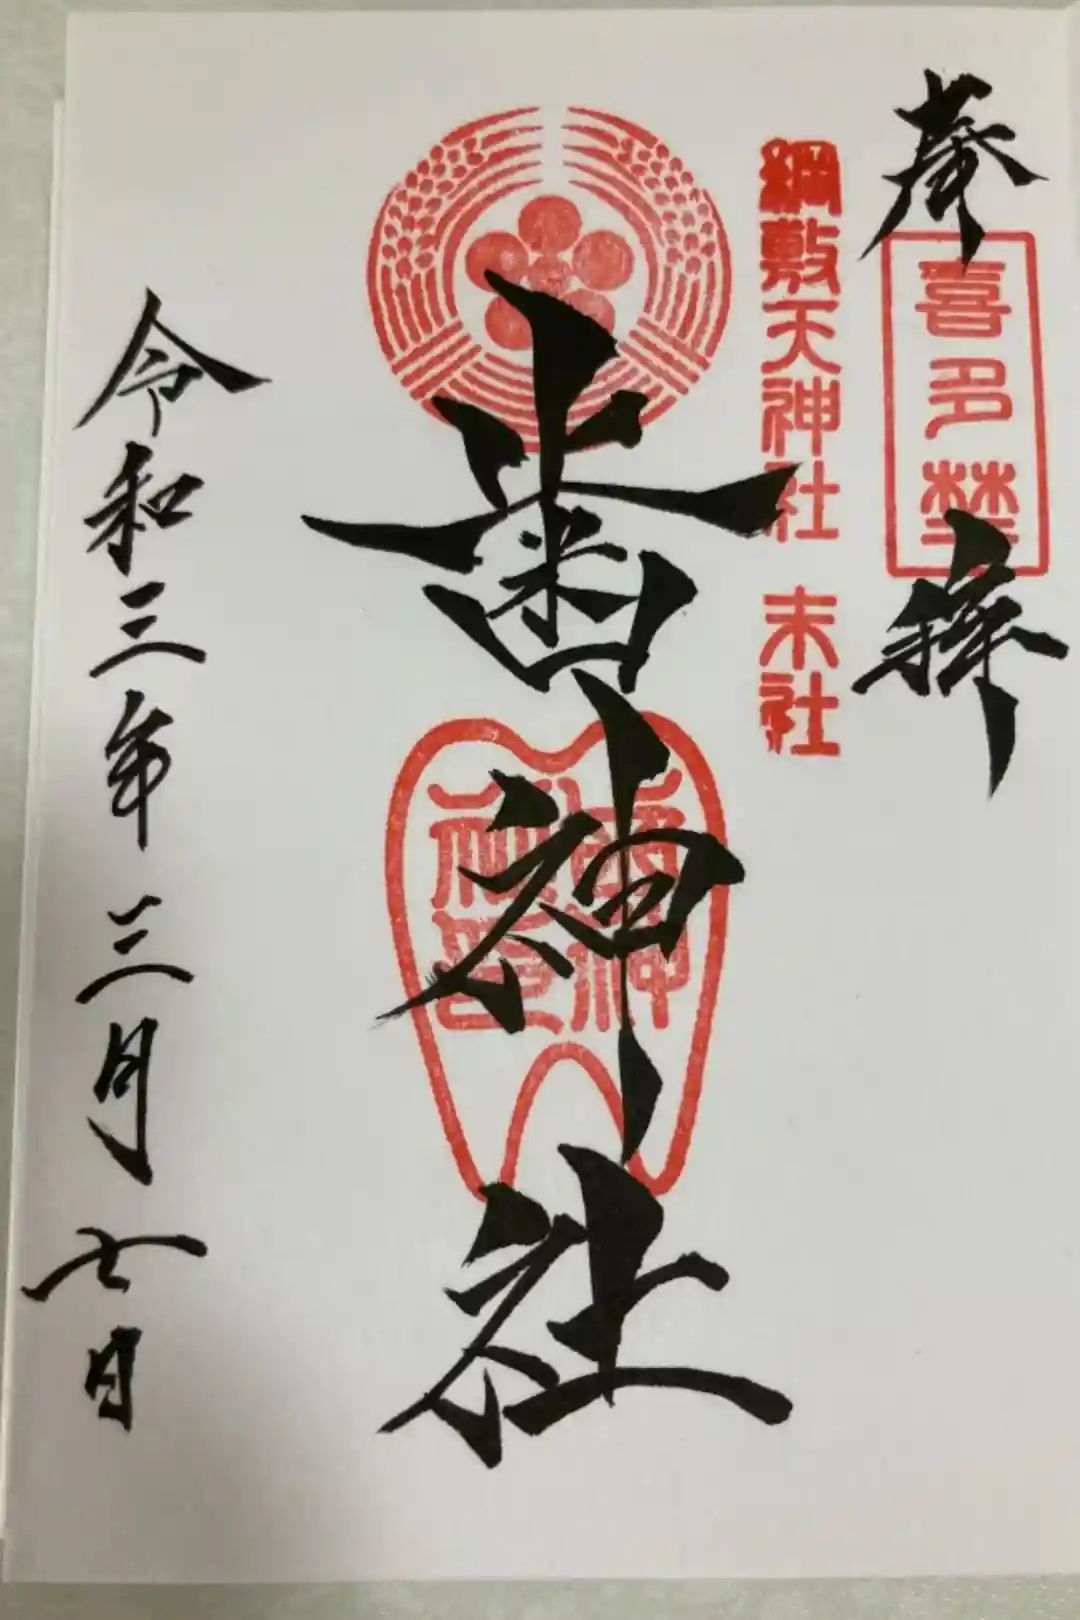 奉拝
喜多埜
綱敷天神社 末社
歯神社
歯神
社印
令和三年三月七日